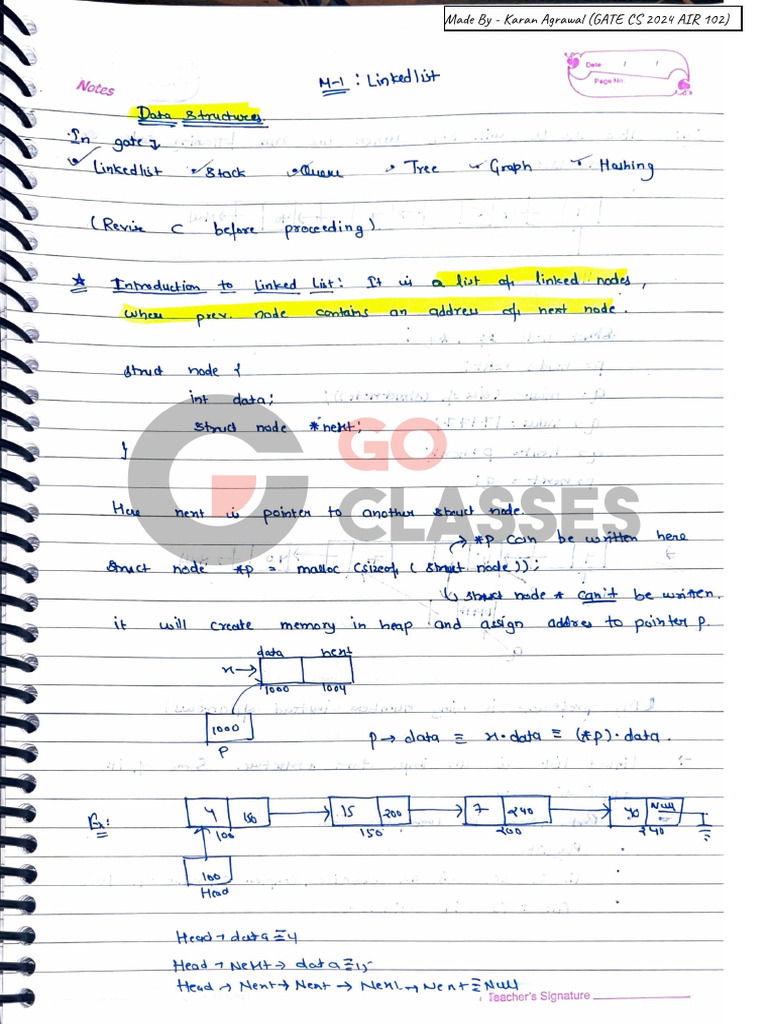 Made By - Karan Agrawal (GATE CS 2024 AIR 102)
Notes
M-1 : Linkedlist
Date / /
Page No
Data Structures.
In gate
Linkedlist Stack Queue Tree Graph Hashing
(Revise C before proceeding)
Introduction to Linked List: It is a list of linked nodes,
where prev. node contains an address of next node.
struct node {
int data;
struct node *next;
}
GO
CLASSES
Here next is pointer to another struct node.
*p can be written here
struct node *p = malloc (sizeof (struct node));
struct node * can't be written.
it will create memory in heap and assign address to pointer p.
data next
x→
1000 1004
1000
P
p → data ≡ x.data ≡ (*p).data.
Ex:
4 150 15 200 7 240 Null
100 150 200 240
100
Head
Head → data ≡ 4
Head → Next → data ≡ 15
Head → Next → Next → Next → Next ≡ Null
Teacher's Signature